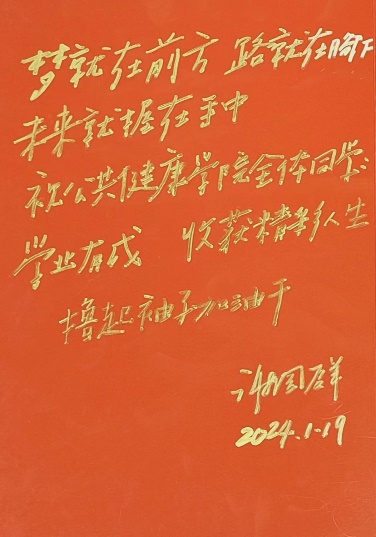 梦就在前方 路就在脚下
未来就握在手中
祝公共健康学院全体同学:
学业有成 收获精彩人生
撸起袖子加油干
谢国群
2024.1.19